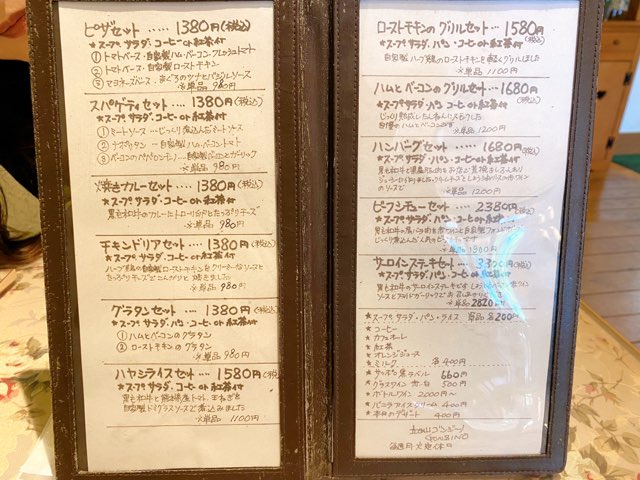 ピザセット ····· 1380円(税込)
★スープ サラダ・コーヒーor紅茶付
① トマトベース・自家製ハム・ベーコン・フレッシュトマト
② トマトベース・自家製ローストチキン
③ マヨネーズベース・まぐろのツナとバジルソース
※単品 980円
スパゲティセット ···· 1380円(税込)
★スープ サラダ・コーヒーor紅茶付
① ミートソース … じっくり煮込んだミートソース
② ナポリタン … 自家製ハム・ベーコントマト
③ ベーコンのペペロンチーノ … 自家製ベーコンとガーリック
※単品 980円
焼きカレーセット ···· 1380円(税込)
★スープ サラダ・コーヒーor紅茶付
黒毛和牛のカレーにトローリ玉子とたっぷりチーズ
※単品 980円
チキンドリアセット ···· 1380円(税込)
★スープ サラダ・コーヒーor紅茶付
ハーブ鶏の自家製ローストチキンをクリーミーなソースと
たっぷりチーズでこんがりと焼きました
※単品 980円
グラタンセット ···· 1380円(税込)
★スープ サラダ・パン・コーヒーor紅茶付
① ハムとベーコンのグラタン
② ローストチキンのグラタン
※単品 980円
ハヤシライスセット ···· 1580円(税込)
★スープ サラダ・コーヒーor紅茶付
黒毛和牛と飯綱産トマト、玉ねぎを
自家製ドミグラスソースで煮込みました
※単品 1100円
ローストチキンのグリルセット ···· 1580円
★スープ サラダ・パン・コーヒーor紅茶付(税込)
自家製ハーブ鶏のローストチキンを軽くグリルしました
※単品 1100円
ハムとベーコンのグリルセット ···· 1680円
★スープ サラダ・パン・コーヒーor紅茶付(税込)
じっくり熟成したんねんにスモークした
自慢のハムとベーコンです
※単品 1200円
ハンバーグセット ···· 1680円(税込)
★スープ サラダ・パン・コーヒーor紅茶付
ソースで
※単品 1200円
ビーフシチューセット ···· 2380円(税込)
★スープ サラダ・パン・コーヒーor紅茶付
じっくり煮込んだ
※単品 1800円
サーロインステーキセット ··· (税込)
★スープ サラダ・パン・コーヒーor紅茶付
黒毛和牛のサーロインステーキを
※単品 2820円
★スープ・サラダ・パン・ライス 単品 各200円
★コーヒー
★カフェオーレ
★紅茶
★オレンジジュース
★ミルク 各400円
★サッポロ黒ラベル 660円
★グラスワイン 赤・白 500円
★ボトルワイン 2000円〜
★バニラアイスクリーム 400円
★本日のデザート 400円
毎週月・火定休日